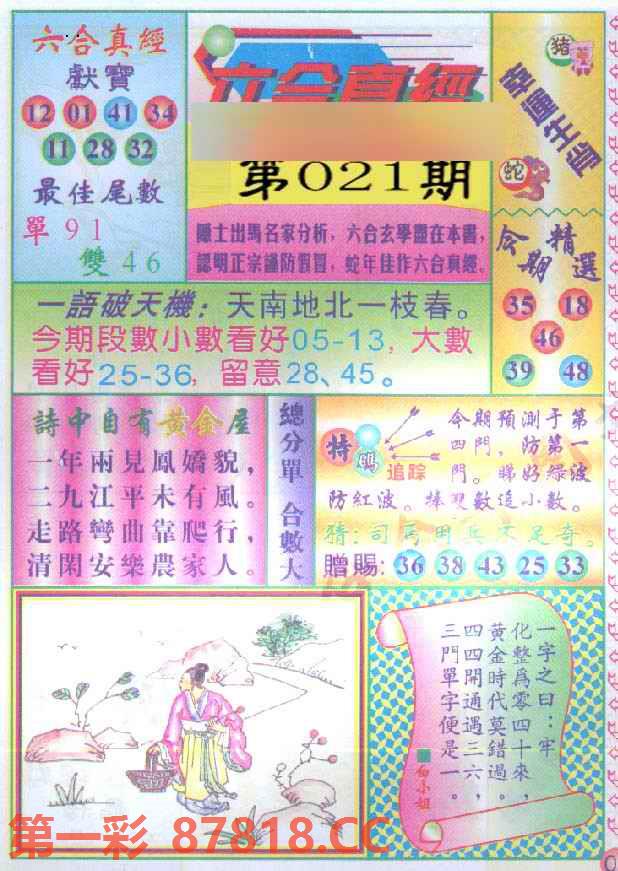 六合真經
獻寶
12 01 41 34
11 28 32
最佳尾數
單91
雙46
六合真經
第021期
隱士出馬名家分析，六合玄學盡在本書，
認明正宗謹防假冒，蛇年佳作六合真經。
豬
蛇
今期精選
35 18
46
39 48
一語破天機：天南地北一枝春。
今期段數小數看好05-13，大數
看好25-36，留意28、45。
詩中自有黃金屋
一年兩見鳳嬌貌，
二九江平未有風。
走路彎曲靠爬行，
清閑安樂農家人。
總分單 合數大
特碼
追踪
今期預測于第
四門，防第一
門。睇好绿波
防紅波。捧雙數追小數。
贈賜：36 38 43 25 33
一字之曰：牢
化整為零四十來，
黃金時代莫錯過。
四四開通遇三六，
三門單字便是一。
白小姐
第一彩 87818.CC